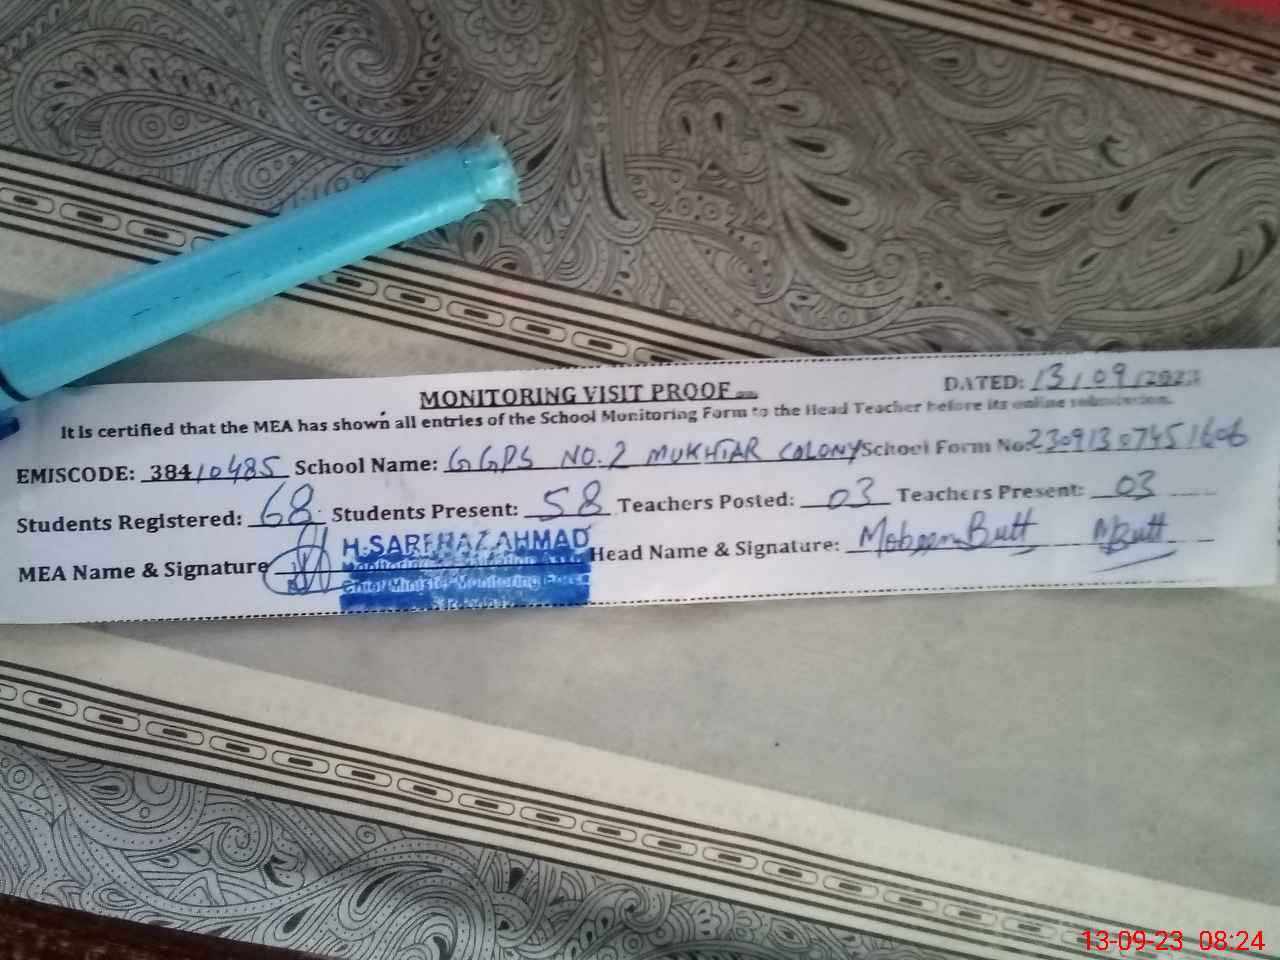 MONITORING VISIT PROOF
DATED: 13/09/2023
It is certified that the MEA has shown all entries of the School Monitoring Form to the Head Teacher before its online submission.
EMISCODE: 38410485 School Name: GGPS NO. 2 MUKHTAR COLONY School Form No: 23091307451606
Students Registered: 68 Students Present: 58 Teachers Posted: 03 Teachers Present: 03
MEA Name & Signature H.SARFRAZ AHMAD Head Name & Signature: Mobeen Butt MButt
Chief Minister Monitoring Force
13-09-23 08:24